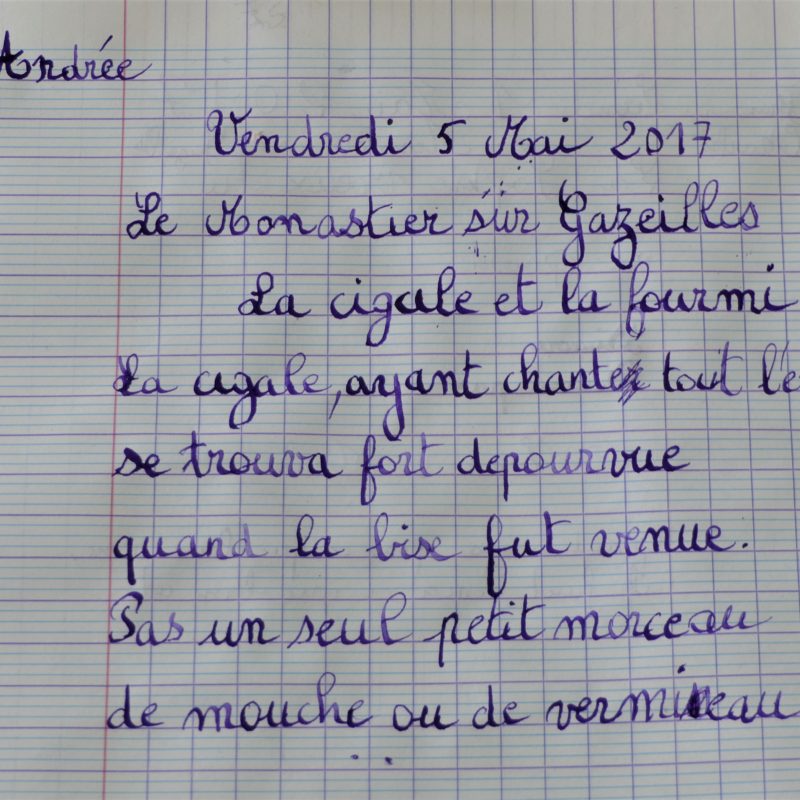 Andrée
Vendredi 5 Mai 2017
Le Monastier sur Gazeilles
La cigale et la fourmi
La cigale, ayant chanté tout l'é
se trouva fort depourvue
quand la bise fut venue.
Pas un seul petit morceau
de mouche ou de vermi